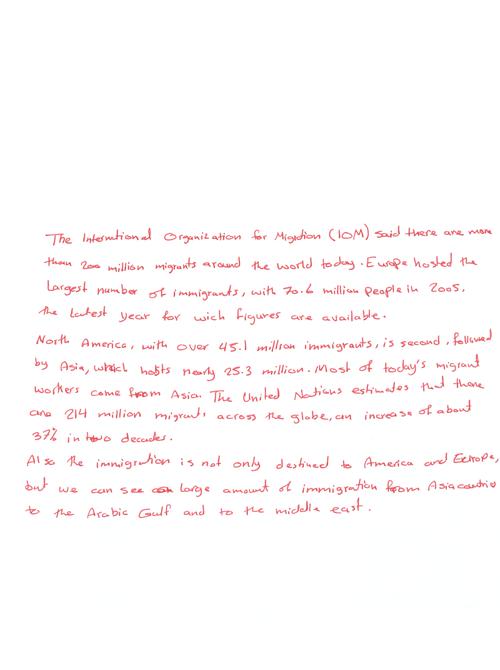 The International Organization for Migration (IOM) said there are more
than 200 million migrants around the world today. Europe hosted the
Largest number of immigrants, with 70.6 million people in 2005,
the latest year for wich figures are available.
North America, with over 45.1 million immigrants, is second, followed
by Asia, which hosts nearly 25.3 million. Most of today's migrant
workers come from Asia. The United Nations estimates that there
are 214 million migrants across the globe, an increase of about
37% in two decades.
Also the immigration is not only destined to America and Eerope,
but we can see large amount of immigration from Asia countries
to the Arabic Gulf and to the middle east.